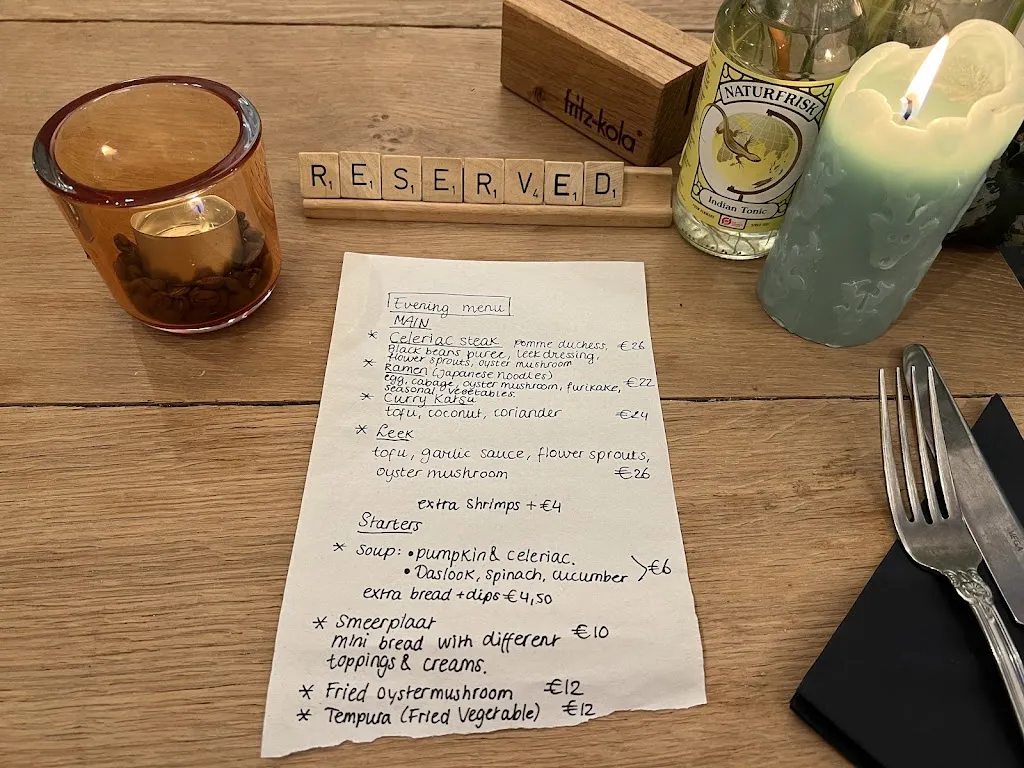 fritz-kola
NATURFRISK
Indian Tonic
RESERVED
Evening menu
MAIN
* Celeriac steak pomme duchess, €26
Black beans puree, leek dressing,
flower sprouts, oyster mushroom
* Ramen (Japanese noodles)
egg, cabage, oyster mushroom, furikake, €22
seasonal vegetables.
* Curry Katsu
tofu, coconut, coriander €24
* Leek
tofu, garlic sauce, flower sprouts,
oyster mushroom €26
extra shrimps + €4
Starters
* Soup: • pumpkin & celeriac.
• Daslook, spinach, cucumber >€6
extra bread + dips €4,50
* Smeerplaat
mini bread with different €10
toppings & creams.
* Fried oystermushroom €12
* Tempura (Fried Vegetable) €12